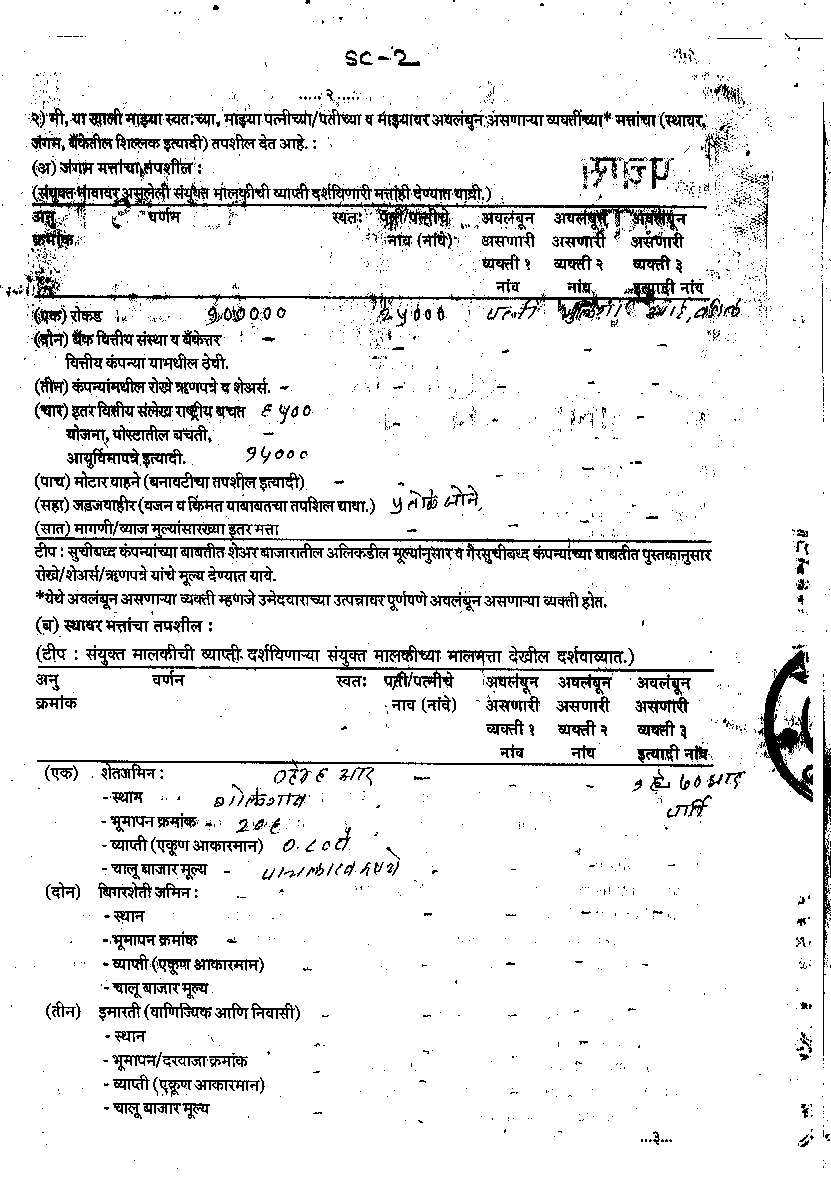 SC-2
.....२.....
२) मी, या खाली माझ्या स्वतःच्या, माझ्या पत्नीच्या/पतीच्या व माझ्यावर अवलंबुन असणाऱ्या व्यक्तींच्या* मत्तांचा (स्थावर,
जंगम, बँकेतील शिल्लक इत्यादी) तपशील देत आहे. :
(अ) जंगम मत्तांचा तपशील :
(संयुक्त नावावर असुलेली संयुक्त मालकीची व्याप्ती दर्शविणारी मत्ताही देण्यात यावी.)
अनु वर्णम स्वतः पती/पत्नीचे अवलंबून अवलंबून अवलंबून
क्रमांक नांव (नांवे) असणारी असणारी असणारी
व्यक्ती १ व्यक्ती २ व्यक्ती ३
नांव नांव इत्यादी नांव
(एक) रोकड 900000 24000 पत्नी आई, वडिल
(दोन) बँक वित्तीय संस्था व बँकेत्तर
वित्तीय कंपन्या यामधील ठेवी.
(तीन) कंपन्यांमधील रोखे ऋणपत्रे व शेअर्स. -
(चार) इतर वित्तीय संलेख राष्ट्रीय बचत ६५००
योजना, पोस्टातील बचती, -
आयुर्विमापत्रे इत्यादी. १५०००
(पाच) मोटार वाहने (बनावटीचा तपशील इत्यादी) -
(सहा) जडजवाहीर (वजन व किंमत याबाबतचा तपशिल द्यावा.) ५ तोळे सोने,
(सात) मागणी/व्याज मुल्यांसारख्या इतर मत्ता
टीप : सुचीबध्द कंपन्यांच्या बाबतीत शेअर बाजारातील अलिकडील मूल्यांनुसार व गैरसुचीबध्द कंपन्यांच्या बाबतीत पुस्तकानुसार
रोखे/शेअर्स/ऋणपत्रे यांचे मूल्य देण्यात यावे.
*येथे अवलंबून असणाऱ्या व्यक्ती म्हणजे उमेदवाराच्या उत्पन्नावर पूर्णपणे अवलंबून असणाऱ्या व्यक्ती होत.
(ब) स्थावर मत्तांचा तपशील :
(टीप : संयुक्त मालकीची व्याप्ती दर्शविणाऱ्या संयुक्त मालकीच्या मालमत्ता देखील दर्शवाव्यात.)
अनु वर्णन स्वतः पती/पत्नीचे अवलंबून अवलंबून अवलंबून
क्रमांक नाव (नांवे) असणारी असणारी असणारी
व्यक्ती १ व्यक्ती २ व्यक्ती ३
नांव नांव इत्यादी नांव
(एक) शेतजमिन : आर - १ हे ७० आर
- स्थाम
- भूमापन क्रमांक - 206
- व्याप्ती (एकूण आकारमान)
- चालू बाजार मूल्य -
(दोन) बिगरशेती जमिन :
- स्थान
- भूमापन क्रमांक -
- व्याप्ती (एकूण आकारमान)
- चालू बाजार मूल्य
(तीन) इमारती (वाणिज्यिक आणि निवासी)
- स्थान
- भूमापन/दरवाजा क्रमांक
- व्याप्ती (एकूण आकारमान)
- चालू बाजार मूल्य
...३...